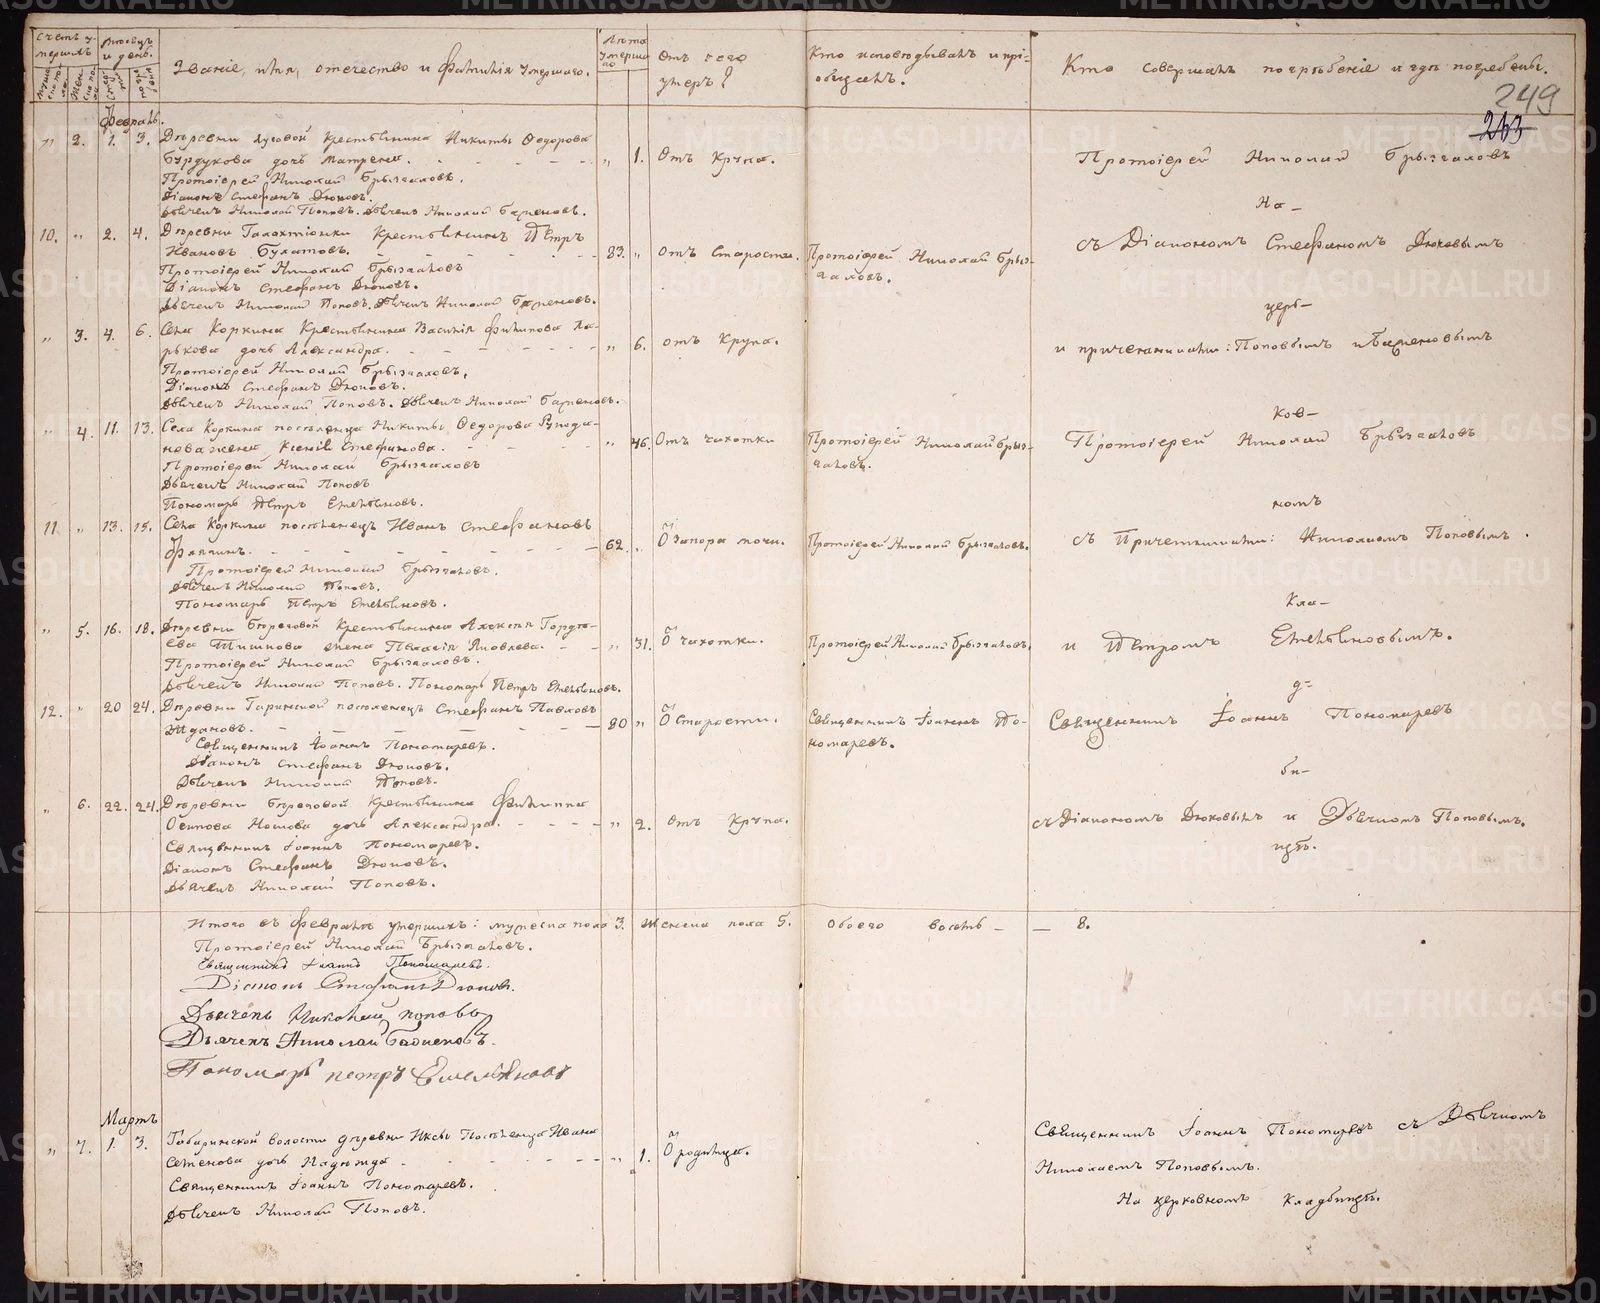 Счетъ у-
мершихъ
Мѣсяцъ
и день.
Званіе, имя, отечество и фамилія умершаго.
Лѣта
умерша
го
Отъ чего
умеръ?
Кто исповѣдывалъ и прі-
общалъ.
Кто совершалъ погрѣбеніе и гдѣ погребены.
249
Февраль.
„ 2. 1. 3. Деревни Луговой Крестьянина Никиты Ѳедорова
Бурдукова дочь Матрена. „ 1. Отъ Крупа. Протоіерей Николай Брызгаловъ
Протоіерей Николай Брызгаловъ.
Діаконъ Стефанъ Дюковъ.
Дьячекъ Николай Поповъ. Дьячекъ Николай
На-
10. „ 2. 4. Деревни Галактіонки Крестьянинъ Петръ
Ивановъ Булатовъ. 83. „ Отъ Старости. Протоіерей Николай Брыз-
галовъ.
съ Діакономъ Стефаномъ Дюковымъ
Протоіерей Николай Брызгаловъ
Діаконъ Стефанъ Дюковъ.
Дьячекъ Николай Поповъ. Дьячекъ Николай
церь-
„ 3. 4. 6. Села Коркина Крестьянина Василія Филипова Ла-
рькова дочь Александра. „ 6. отъ Крупа. и причетниками: Поповымъ и
Протоіерей Николай Брызгаловъ.
Діаконъ Стефанъ Дюковъ.
Дьячекъ Николай Поповъ. Дьячекъ Николай
ков-
„ 4. 11. 13. Села Коркина поселенца Никиты Ѳедорова
жена Ксенія Стефанова. „ 46. Отъ чахотки Протоіерей Николай Брыз-
галовъ. Протоіерей Николай Брызгаловъ
Протоіерей Николай Брызгаловъ
Дьячекъ Николай Поповъ
Пономарь Петръ Емельяновъ.
номъ
11. „ 13. 15. Села Коркина поселенецъ Иванъ Стефановъ
62. „ Ѿ Запора мочи. Протоіерей Николай Брызгаловъ. съ Причетниками: Николаемъ Поповымъ.
Протоіерей Николай Брызгаловъ.
Дьячекъ Николай Поповъ.
Пономарь Петръ Емельяновъ.
Кла-
„ 5. 16. 18. Деревни Береговой Крестьянина Алексѣя Гордѣ-
ева Тишкова жена Пелагія Яковлева. „ 31. Ѿ чахотки. Протоіерей Николай Брызгаловъ. и Петромъ Емельяновымъ.
Протоіерей Николай Брызгаловъ.
Дьячекъ Николай Поповъ. Пономарь Петръ Емельяновъ.
д-
12. „ 20 24. Деревни Гаринской поселенецъ Стефанъ Павловъ
Ждановъ. 80 „ Ѿ Старости. Священникъ Іоаннъ По-
номаревъ. Священникъ Іоаннъ Пономаревъ
Священникъ Іоаннъ Пономаревъ.
Діаконъ Стефанъ Дюковъ.
Дьячекъ Николай Поповъ.
би-
„ 6. 22. 24. Деревни Береговой Крестьянина Филиппа
Осипова Носкова дочь Александра. „ 2. Отъ Крупа. съ Діакономъ Дюковымъ и Дьячкомъ Поповымъ.
Священникъ Іоаннъ Пономаревъ.
Діаконъ Стефанъ Дюковъ.
Дьячекъ Николай Поповъ.
щѣ.
Итого въ Февралѣ умершихъ: мужеска пола 3. Женска пола 5. Обоего восемь - - 8.
Протоіерей Николай Брызгаловъ.
Священникъ Іоаннъ Пономаревъ.
Діаконъ Стефанъ Дюковъ.
Дьячекъ Николай Поповъ
Дьячекъ Николай
Пономарь петръ Емельяновъ
Мартъ
„ 7. 1. 3. Табаринской волости деревни Иксы Поселенца Ивана
Семенова дочь Надежда „ 1. Ѿ родимца. Священникъ Іоаннъ Пономаревъ съ Дьячкомъ
Николаемъ Поповымъ.
Священникъ Іоаннъ Пономаревъ.
Дьячекъ Николай Поповъ.
На церковномъ Кладбищѣ.
METRIKI.GASO-URAL.RU